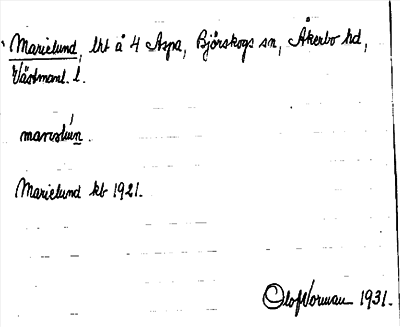 Marielund, lht å 4 Aspa, Bjørskogs sn, Åkerbo hd,
Västmanl. l.
Marielund kb 1921.
Olof Norman 1931.